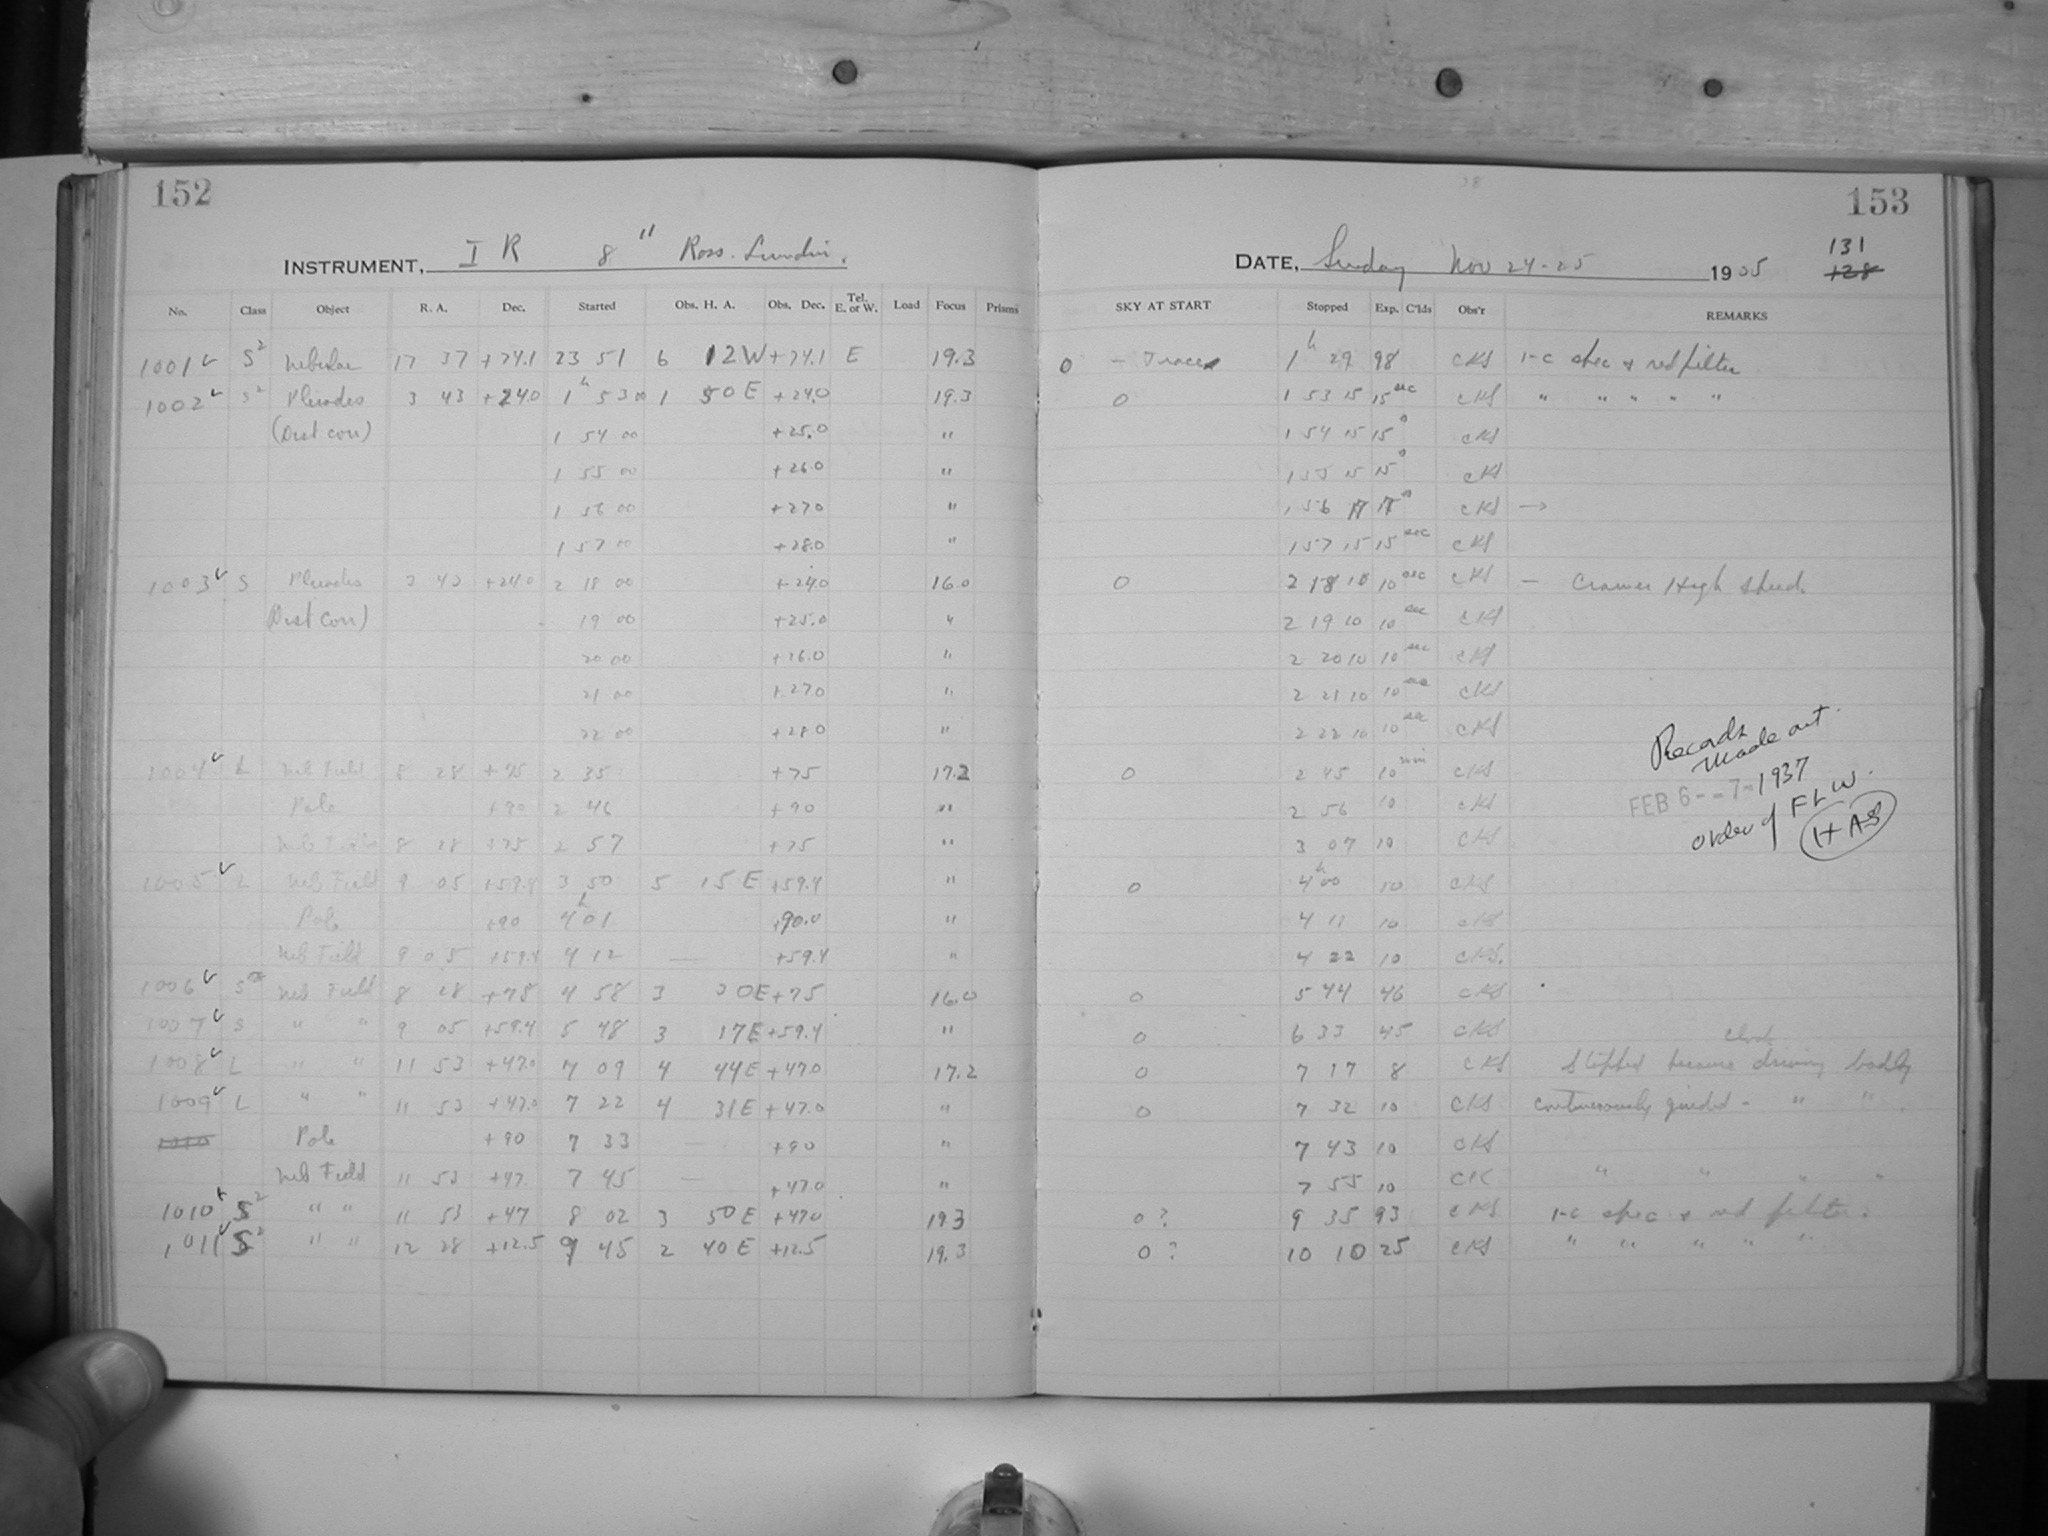 152
INSTRUMENT, I R 8" Ross-Lundin.
No. Class Object R. A. Dec. Started Obs. H. A. Obs. Dec. Tel. E. or W. Load Focus Prisms
1001 S2 nebulae 17 37 +24.1 23 51 6 12 W +24.1 E 19.3
1002 S2 Pleiades 3 43 +24.0 1h 53 00 1 50 E +24.0 19.3
(Dist corr) 1 54 00 +25.0 "
1 55 00 +26.0 "
1 56 00 +27.0 "
1 57 00 +28.0 "
1003 S Pleiades 3 43 +24.0 2 18 00 +24.0 16.0
(Dist Corr) 19 00 +25.0 "
20 00 +26.0 "
21 00 +27.0 "
22 00 +28.0 "
1004 L neb Field 8 28 +75 2 35 +75 17.2
Pole +90 2 46 +90 "
neb Field 8 28 +75 2 57 +75 "
1005 L neb Field 9 05 +59.4 3 50 5 15 E +59.4 "
Pole +90 4h 01 +90.0 "
neb Field 9 05 +59.4 4 12 — +59.4 "
1006 S neb Field 8 28 +75 4 58 3 30 E +75 16.0
1007 S " " 9 05 +59.4 5 48 3 17 E +59.4 "
1008 L " " 11 53 +47.0 7 09 4 44 E +47.0 17.2
1009 L " " 11 53 +47.0 7 22 4 31 E +47.0 "
1010 Pole +90 7 33 — +90 "
neb Field 11 53 +47. 7 45 — +47.0 "
1010 S2 " " 11 53 +47 8 02 3 50 E +47.0 19.3
1011 S2 " " 12 28 +12.5 9 45 2 40 E +12.5 19.3
153
DATE, Sunday Nov 24-25 1935
131
128
SKY AT START Stopped Exp. C'lds Obs'r REMARKS
0 - Traces 1h 29 98 CKS 1-C spec & red filter
0 1 53 15 15 sec CKS " " " " "
1 54 15 15 " CKS
1 55 15 15 " CKS
1 56 17 17 " CKS →
1 57 15 15 sec CKS
0 2 18 10 10 sec CKS — Cramer High Speed.
2 19 10 10 sec CKS
2 20 10 10 sec CKS
2 21 10 10 sec CKS
2 22 10 10 sec CKS
0 2 45 10 min CKS
2 56 10 CKS
3 07 10 CKS
0 4h 00 10 CKS
4 11 10 CKS
4 22 10 CKS.
0 5 44 46 CKS
0 6 33 45 CKS
0 7 17 8 CKS Stopped because clock driving badly
0 7 32 10 CKS continuously guided - " " .
7 43 10 CKS
7 55 10 CK " " " "
0 ? 9 35 93 CKS 1-C spec & red filter.
0 ? 10 10 25 CKS " " " " "
Records
made out.
FEB 6--7-1937
order of FLW.
HAS